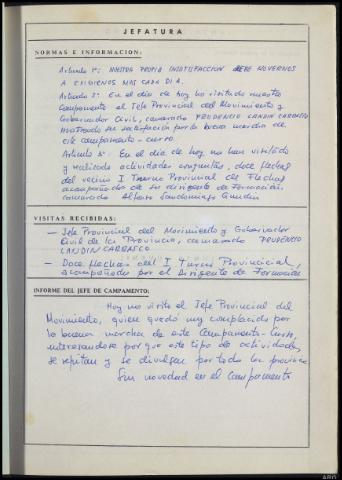 JEFATURA
NORMAS E INFORMACION:
Artículo 1º: NUESTRA PROPIA INSATISFACCION DEBE MOVERNOS
A EXIGIRNOS MAS CADA DIA.
Artículo 2º: En el día de hoy ha visitado nuestro
Campamento el Jefe Provincial del Movimiento y
Gobernador Civil, camarada PRUDENCIO LANDIN CARRASCO
mostrando su satisfacción por la buena marcha de
este campamento-curso.
Artículo 3º: En el día de hoy nos han visitado
y realizado actividades conjuntas, doce flechas
del vecino I Turno Provincial de Flechas
acompañados de su dirigente de Formación
camarada Alfaro
VISITAS RECIBIDAS:
- Jefe Provincial del Movimiento y Gobernador
Civil de la Provincia, camarada PRUDENCIO
LANDIN CARRASCO
- Doce flechas del I Turno Provincial,
acompañados por el Dirigente de Formación
INFORME DEL JEFE DE CAMPAMENTO:
Hoy nos visitó el Jefe Provincial del
Movimiento, quien quedó muy complacido por
la buena marcha de este Campamento-Curso
interesandose por que este tipo de actividades,
se repitan y se divulgen por toda la provincia
Sin novedad en el Campamento